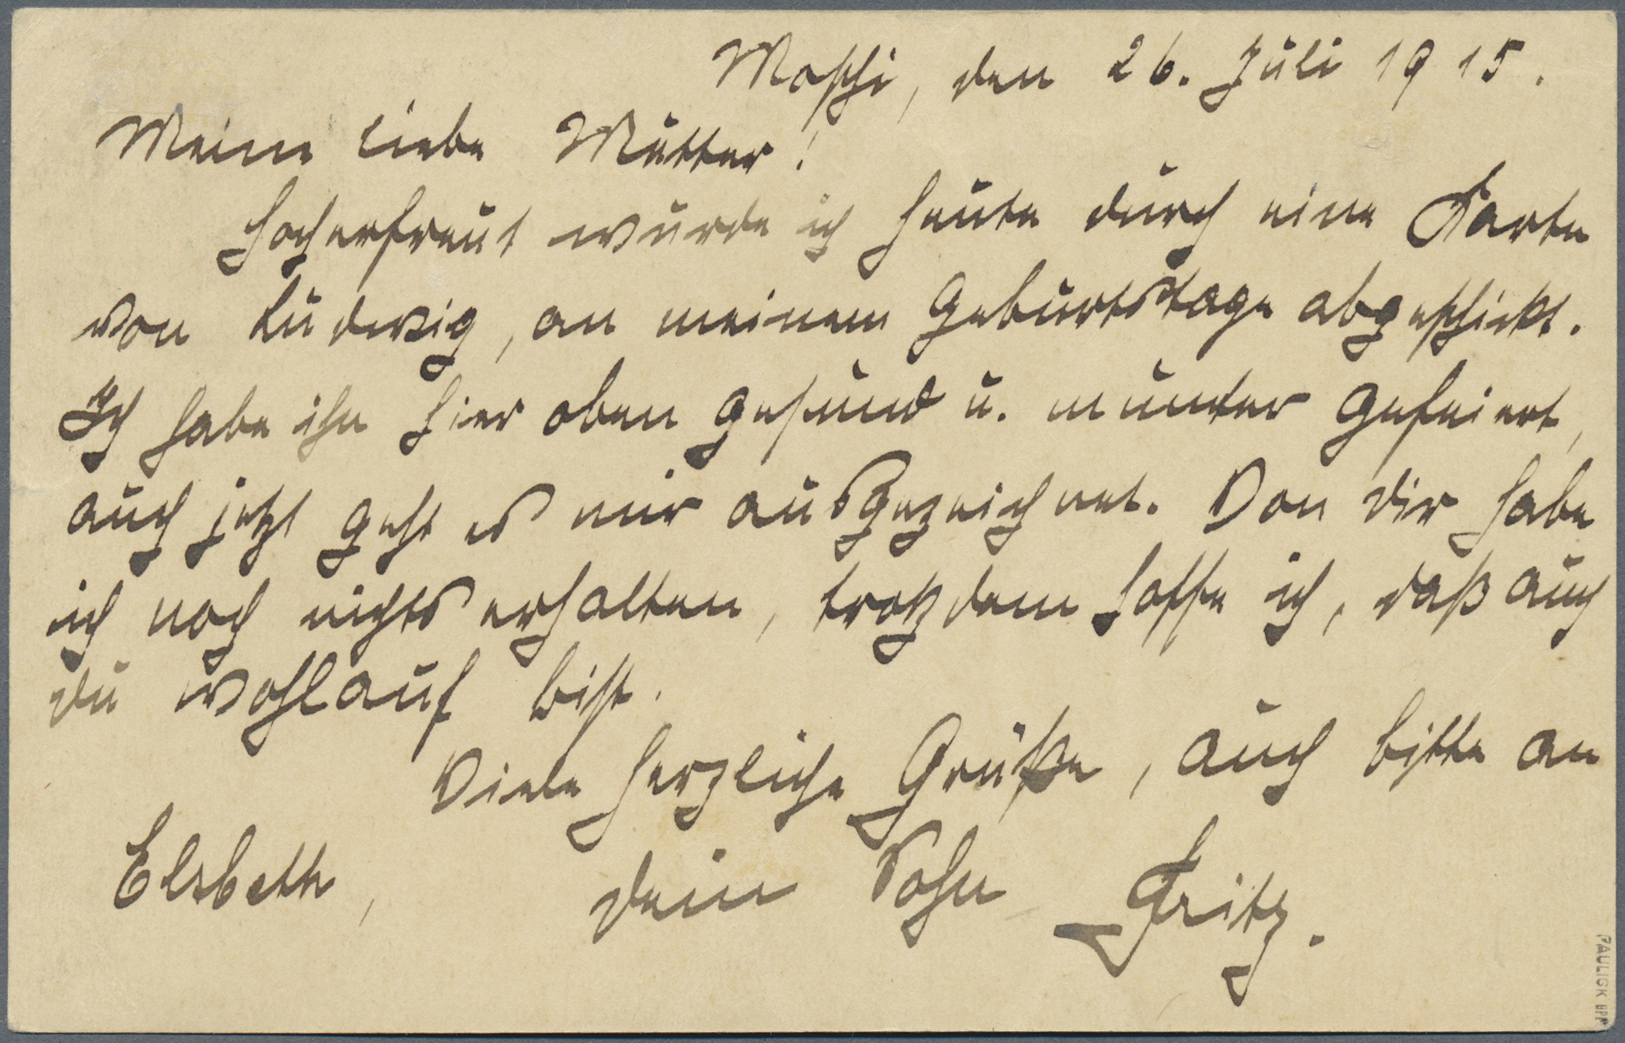 Moschi, den 26. Juli 1915.
Meine liebe Mutter!
Hocherfreut wurde ich heute durch eine Karte
von Ludwig, an meinem Geburtstage abgeschickt.
Ich habe ihn hier oben gesund u. munter gefeiert,
auch jetzt geht es mir ausgezeichnet. Von dir habe
ich noch nichts erhalten, trotzdem hoffe ich, daß auch
du wohlauf bist.
Viele herzliche Grüße, auch bitte an
Elsbeth, dein Sohn Fritz.
PAULIGK BPP